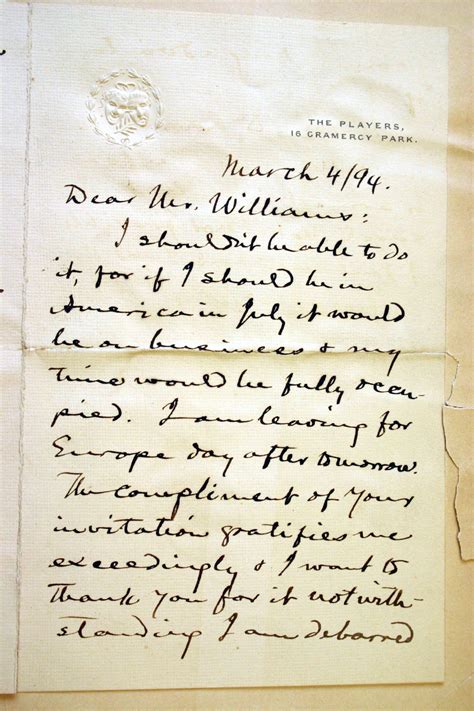 THE PLAYERS,
16 GRAMERCY PARK.
March 4/94.
Dear Mr. Williams:
I shouldn't be able to do
it, for if I should be in
America in July it would
be on business & my
time would be fully occu-
pied. I am leaving for
Europe day after tomorrow.
The compliment of your
invitation gratifies me
exceedingly & I want to
thank you for it notwith-
standing I am debarred